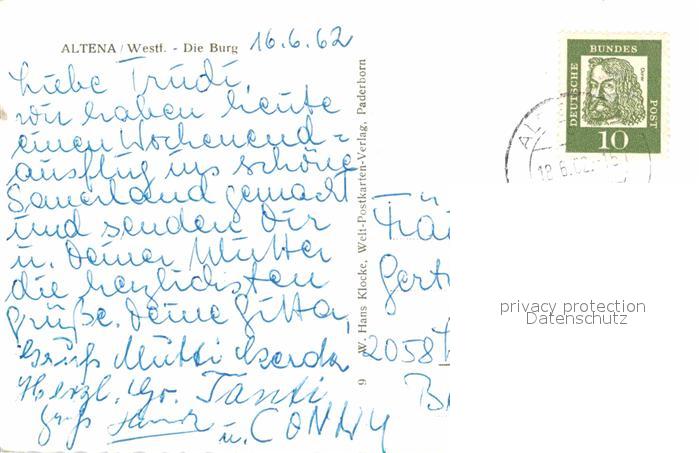 ALTENA / Westf. - Die Burg
16.6.62
Liebe Trudi
wir haben heute
einen Wochenend=
ausflug ins schöne
Sauerland gemacht
und senden Dir
u. Deiner Mutter
die herzlichsten
Grüße. Deine Gitta,
Gruß Mutti
Herzl. Gr. Tanti
Gruß
u. CONNY
9 W. Hans Klocke, Welt-Postkarten-Verlag, Paderborn
DEUTSCHE BUNDES POST
10
18.6.62
2058
privacy protection
Datenschutz